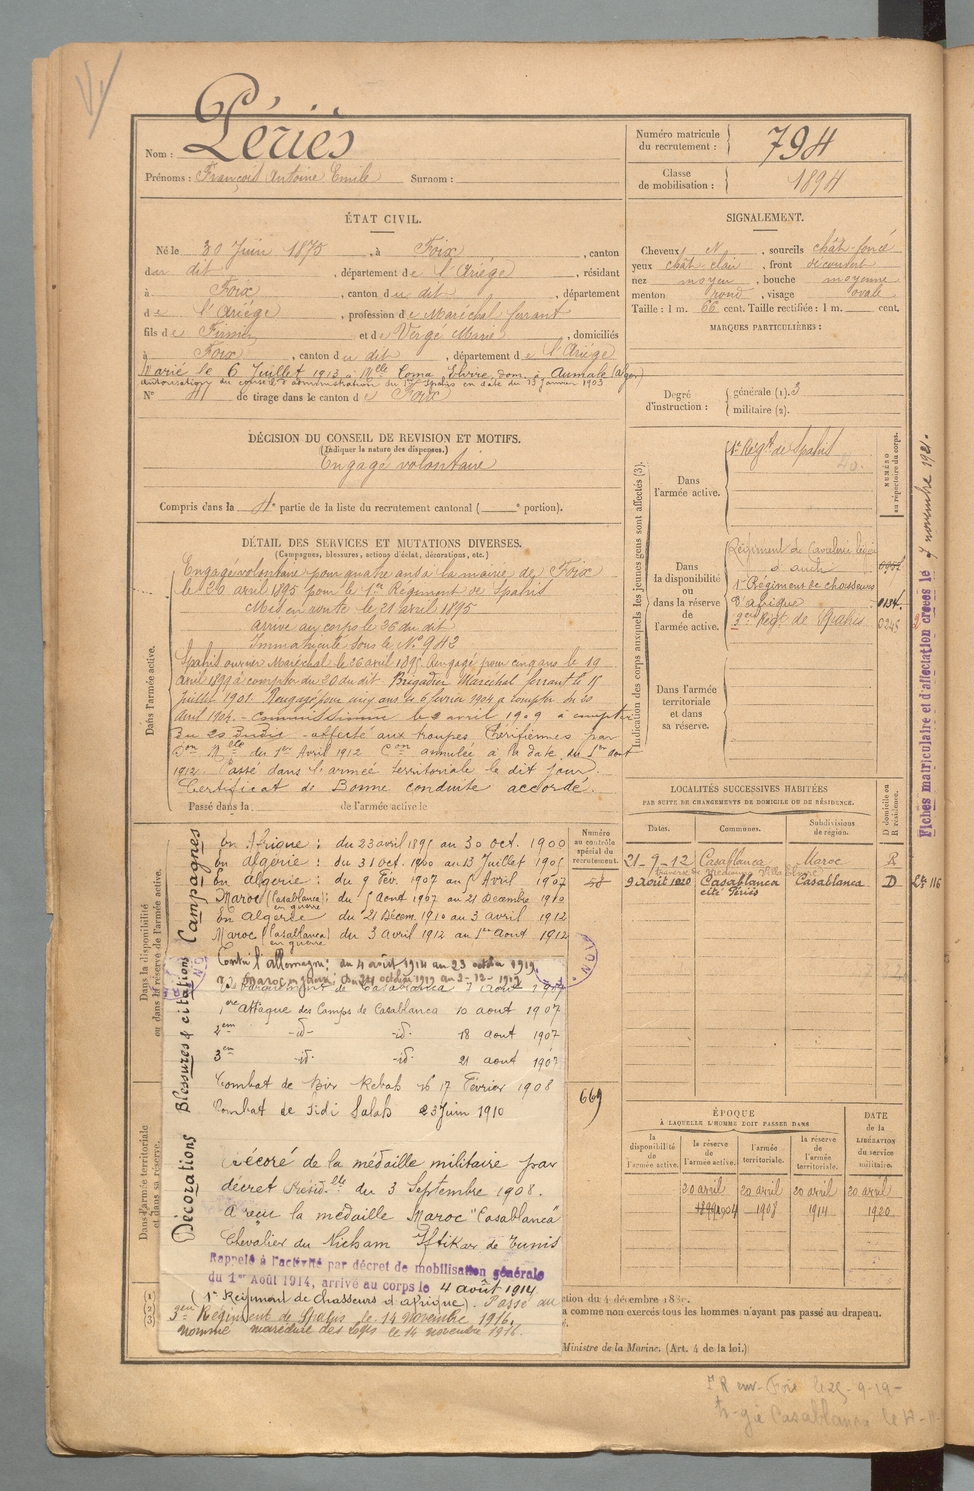 Nom : Périès
Prénoms : François Antoine Emile Surnom :
Numéro matricule du recrutement : 794
Classe de mobilisation : 1894
ÉTAT CIVIL.
Né le 30 Juin 1875, à Foix, canton
du dit, département de l'Ariége, résidant
à Foix, canton du dit, département
de l'Ariége, profession de Maréchal ferrant
fils de Firmin et de Vergé Marie, domiciliés
à Foix, canton du dit, département de l'Ariége
Marié le 6 Juillet 1913 à Melle Coma Elvire, dom. à Aumale (Alger)
autorisation du conseil d'administration du 1er Spahis en date du 13 janvier 1903
N° 41 de tirage dans le canton de Foix
SIGNALEMENT.
Cheveux N, sourcils chât. foncé
yeux chât. clair, front découvert
nez moyen, bouche moyenne
menton rond, visage ovale
Taille : 1 m. 66 cent. Taille rectifiée : 1 m. cent.
MARQUES PARTICULIÈRES :
Degré d'instruction : générale (1). 3
militaire (2).
DÉCISION DU CONSEIL DE REVISION ET MOTIFS.
(Indiquer la nature des dispenses.)
Engagé volontaire
Compris dans la 4e partie de la liste du recrutement cantonal ( e portion).
DÉTAIL DES SERVICES ET MUTATIONS DIVERSES.
(Campagnes, blessures, actions d'éclat, décorations, etc.)
Dans l'armée active.
Engagé volontaire pour quatre ans à la mairie de Foix
le 20 avril 1895 pour le 1er Régiment de Spahis
Mis en route le 21 avril 1895
arrivé au corps le 26 du dit
Immatriculé sous le N° 942
Spahis ouvrier Maréchal le 26 avril 1895. Rengagé pour cinq ans le 19
avril 1899 à compter du 20 du dit. Brigadier Maréchal ferrant le 11
juillet 1901. Rengagé pour cinq ans le 6 février 1904 à compter du 20
avril 1904. Commissionné le 2 avril 1909 à compter
du 20 affecté aux troupes Chérifiennes par
Don Mlle du 1er Avril 1912 Con annulée à la date du 1er aout
1912. Passé dans l'armée territoriale le dit jour.
Certificat de Bonne conduite accordé.
Passé dans la de l'armée active le
Indication des corps auxquels les jeunes gens sont affectés (3).
NUMÉRO au répertoire du corps.
Dans l'armée active.
1er Régt de Spahis
Dans la disponibilité ou dans la réserve de l'armée active.
Régiment de Cavalerie légère
1er Régiment de chasseurs
d'afrique 0134
3eme Régt de Spahis 0245
Dans l'armée territoriale et dans sa réserve.
Fiches matriculaire et d'affectation créées le 7 novembre 1921.
LOCALITÉS SUCCESSIVES HABITÉES
PAR SUITE DE CHANGEMENTS DE DOMICILE OU DE RÉSIDENCE.
Dates. Communes. Subdivisions de région. D domicile ou R résidence.
21-9-12 Casablanca Maroc R
9 aout 1920 Casablanca Casablanca D
cité Périès
Dans la disponibilité ou dans la réserve de l'armée active.
Campagnes
En Afrique : du 23 avril 1895 au 30 oct. 1900
En algérie : du 31 oct. 1900 au 13 Juillet 1905
En algérie : du 9 Fév. 1907 au 5 Avril 1907
Maroc (Casablanca) en guerre : du 5 aout 1907 au 21 Décembre 1910
En algérie du 21 Décem. 1910 au 3 avril 1912
Maroc (Casablanca) en guerre du 3 avril 1912 au 1er aout 1912
Contre l'allemagne : du 4 août 1914 au 23 octobre 1919
Maroc en guerre : du 24 octobre 1919 au 3-12-1919
Numéro au contrôle spécial du recrutement.
669
NON
Blessures & citations
de Casablanca 7 aout 1907
1ere attaque des Camps de Casablanca 10 aout 1907
2em -id- -id- 18 aout 1907
3em -id- -id- 21 aout 1907
Combat de Bir Rebah 16 17 Février 1908
Combat de Sidi Salah 23 Juin 1910
Décorations
Décoré de la médaille militaire par
décret Présid.elle du 3 Septembre 1908.
A reçu la médaille Maroc "Casablanca"
Chevalier du Nicham Iftikar de Tunis
Rappelé à l'activité par décret de mobilisation générale
du 1er Août 1914, arrivé au corps le 4 août 1914
(1er Régiment de Chasseurs d'afrique). Passé au
3em Régiment de Spahis le 14 Novembre 1916.
nommé maréchal des logis le 14 novembre 1916.
Dans l'armée territoriale et dans sa réserve.
ÉPOQUE À LAQUELLE L'HOMME DOIT PASSER DANS
la disponibilité de l'armée active. la réserve de l'armée active. l'armée territoriale. la réserve de l'armée territoriale. DATE de la LIBÉRATION du service militaire.
20 avril 20 avril 20 avril 20 avril
1904 1908 1914 1920
ction du 4 décembre 1889.
a comme non exercés tous les hommes n'ayant pas passé au drapeau.
Ministre de la Marine. (Art. 4 de la loi.)
Foix le 25-9-19-
Casablanca le